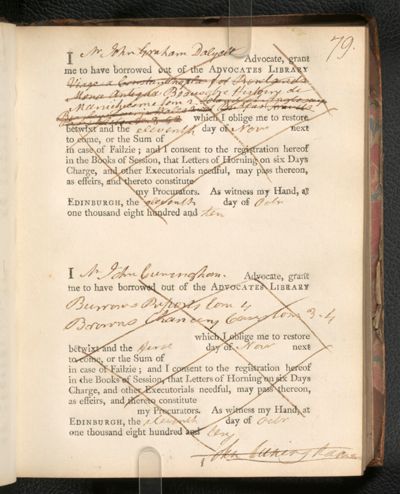 79.
I Mr John Graham Dalyell Advocate, grant
me to have borrowed out of the ADVOCATES LIBRARY
Voyage a Constantinople
Mona Antiqua History de
Manicheisme tom 2
which I oblige me to restore
betwixt and the eleventh day of Novr next
to come, or the Sum of
in case of Failzie; and I consent to the registration hereof
in the Books of Session, that Letters of Horning on six Days
Charge, and other Executorials needful, may pass thereon,
as effeirs, and thereto constitute
my Procurators. As witness my Hand, at
EDINBURGH, the day of Octr
one thousand eight hundred and ten
I Mr John Cuningham. Advocate, grant
me to have borrowed out of the ADVOCATES LIBRARY
Burrows Reports tom 4
Browns Chancery Cases tom 3-4
which I oblige me to restore
betwixt and the first day of Novr next
to come, or the Sum of
in case of Failzie; and I consent to the registration hereof
in the Books of Session, that Letters of Horning on six Days
Charge, and other Executorials needful, may pass thereon,
as effeirs, and thereto constitute
my Procurators. As witness my Hand, at
EDINBURGH, the eleventh day of Octr
one thousand eight hundred and ten
John Cuninghame